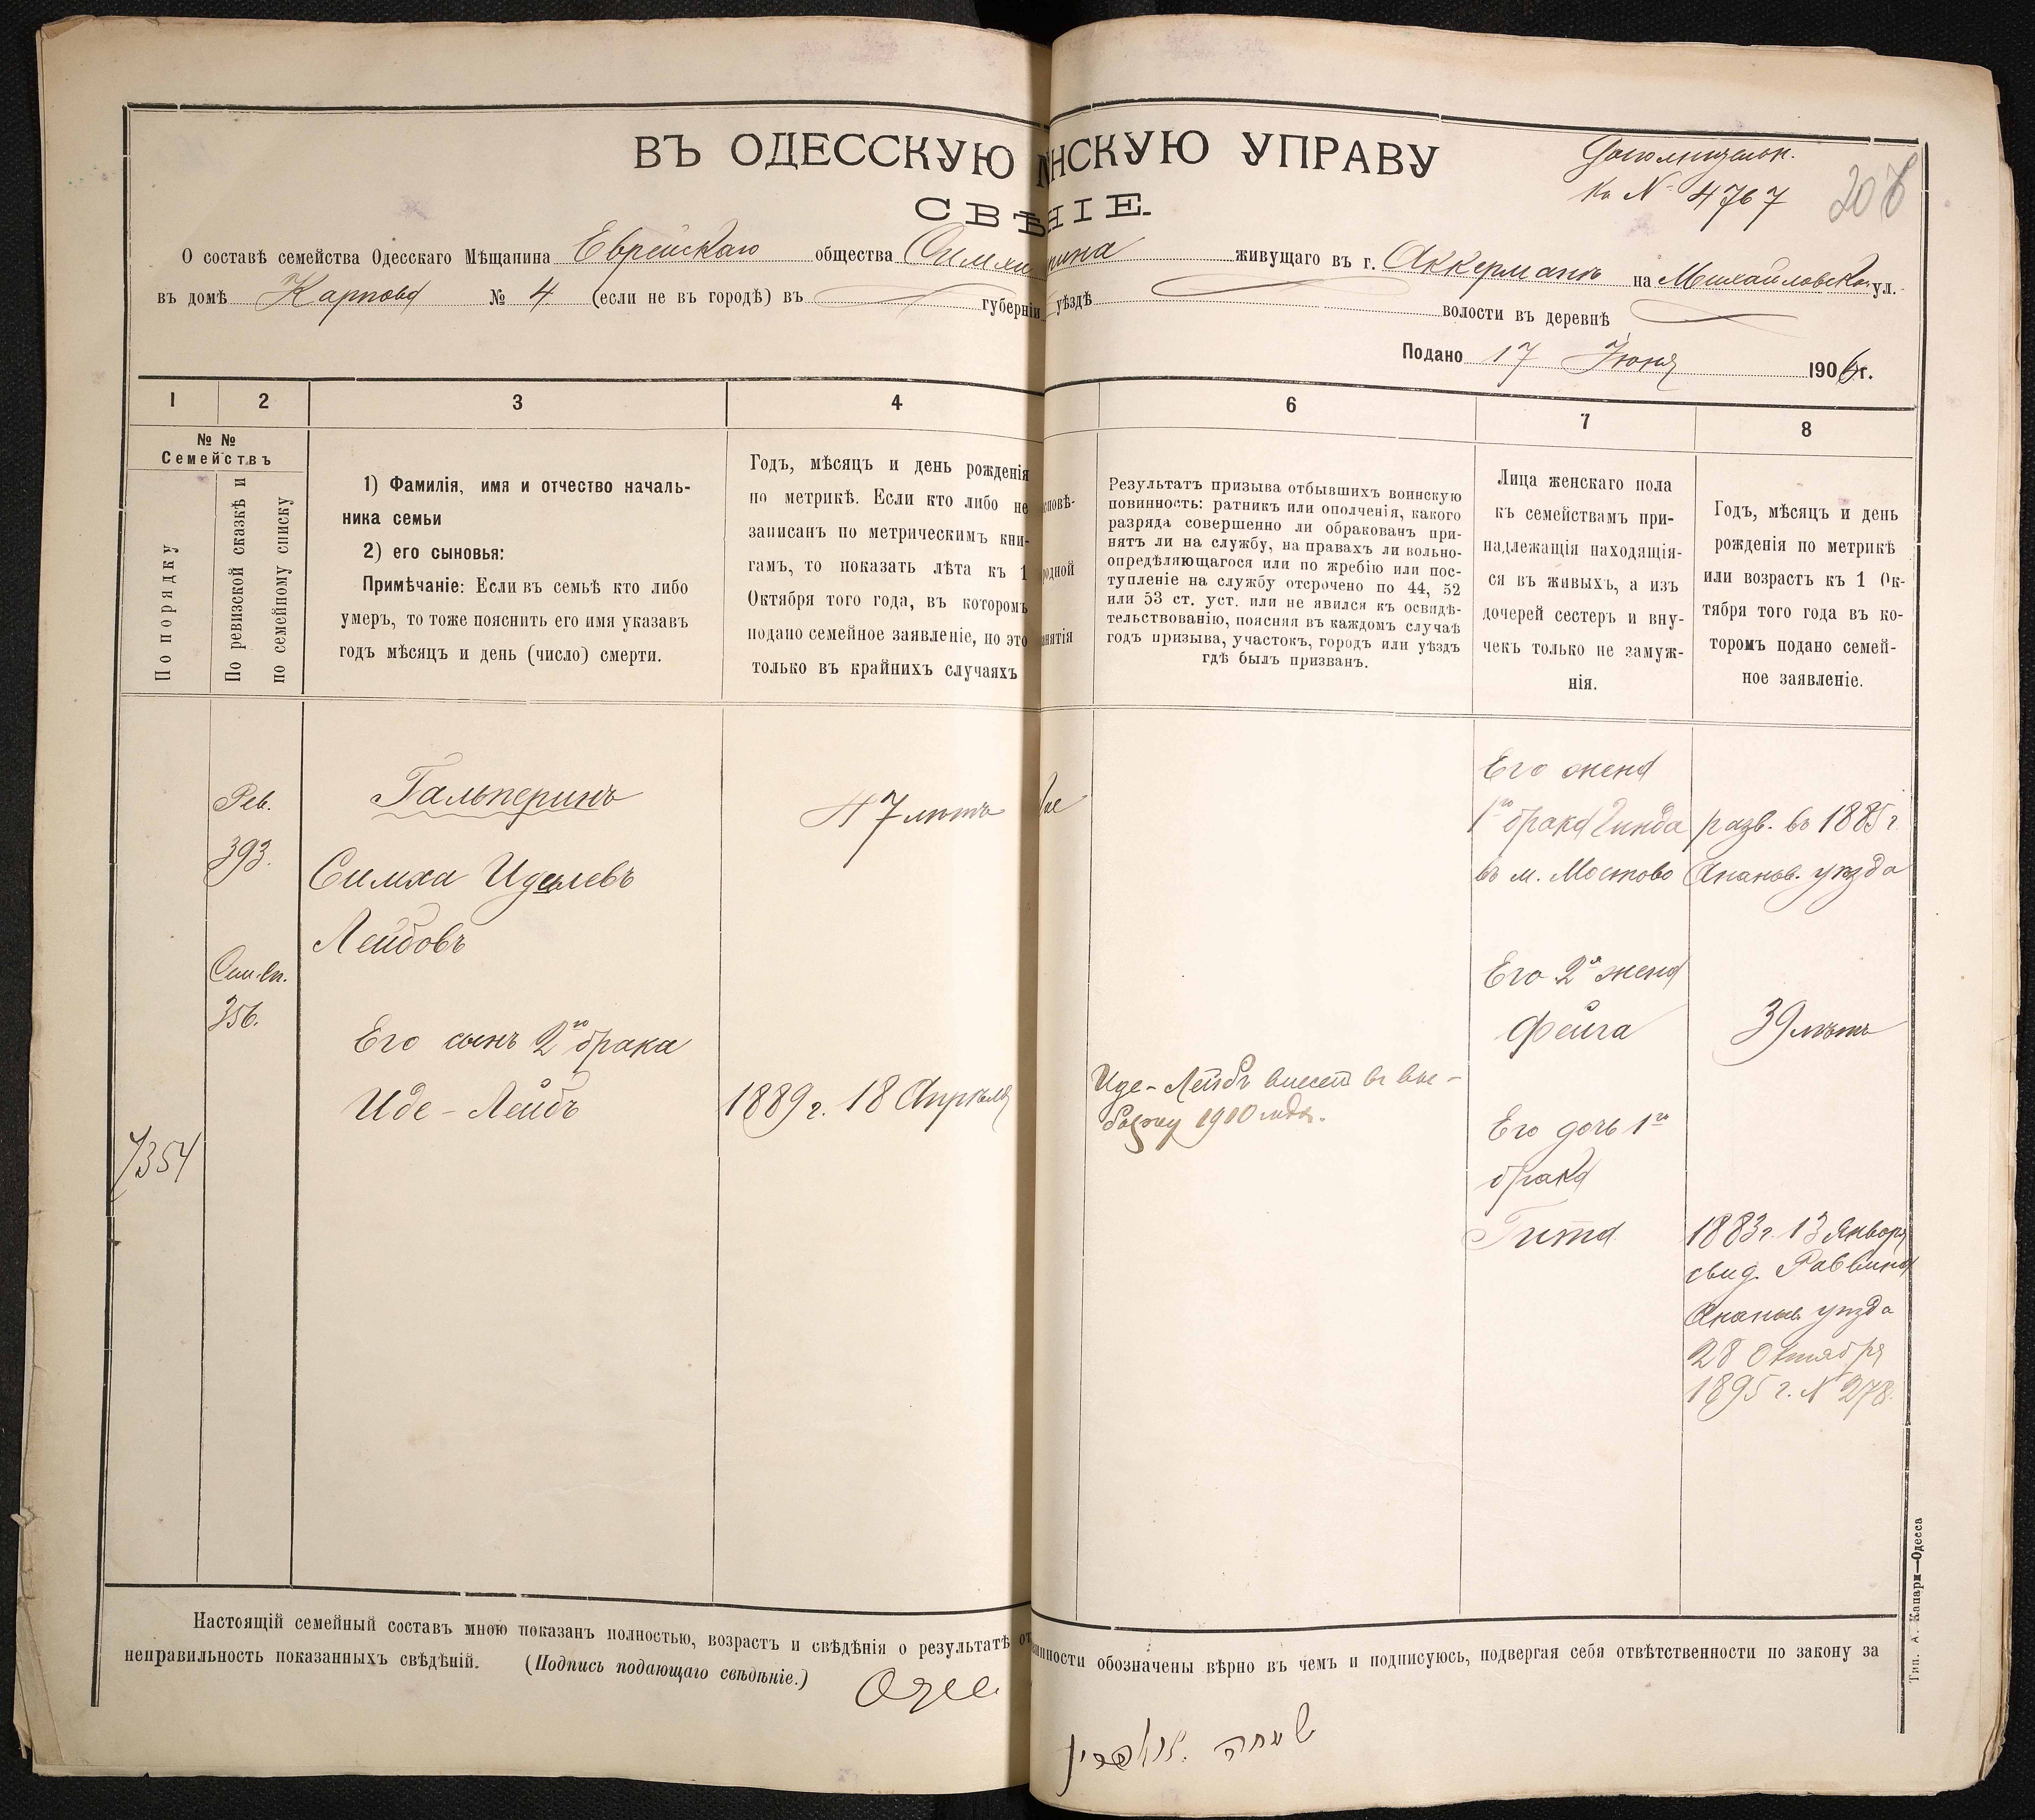 ВЪ ОДЕССКУЮ НСКУЮ УПРАВУ
СВѢ НІЕ.
Дополнительн.
къ № 4767
207
О составѣ семейства Одесскаго Мѣщанина Еврейскаго общества Симхи рина живущаго въ г. Аккерманъ на Михайловской ул.
въ домѣ Карпова № 4 (если не въ городѣ) въ губерніи уѣздѣ волости въ деревнѣ
Подано 17 Іюня 1906 г.
1 2 3 4 6 7 8
№ №
Семействъ
По порядку
По ревизской сказкѣ и
по семейному списку
1) Фамилія, имя и отчество началь-
ника семьи
2) его сыновья:
Примѣчаніе: Если въ семьѣ кто либо
умеръ, то тоже пояснить его имя указавъ
годъ мѣсяцъ и день (число) смерти.
Годъ, мѣсяцъ и день рожденія
по метрикѣ. Если кто либо не
записанъ по метрическимъ кни-
гамъ, то показать лѣта къ 1
Октября того года, въ которомъ
подано семейное заявленіе, но это
только въ крайнихъ случаяхъ
сповѣ-
родной
анятія
Результатъ призыва отбывшихъ воинскую
повинность: ратникъ или ополченія, какого
разряда совершенно ли обракованъ при-
нятъ ли на службу, на правахъ ли вольно-
опредѣляющагося или по жребію или пос-
тупленіе на службу отсрочено по 44, 52
или 53 ст. уст. или не явился къ освидѣ-
тельствованію, поясняя въ каждомъ случаѣ
годъ призыва, участокъ, городъ или уѣздъ
гдѣ былъ призванъ.
Лица женскаго пола
къ семействамъ при-
надлежащія находящія-
ся въ живыхъ, а изъ
дочерей сестеръ и вну-
чекъ только не замуж-
нія.
Годъ, мѣсяцъ и день
рожденія по метрикѣ
или возрастъ къ 1 Ок-
тября того года въ ко-
торомъ подано семей-
ное заявленіе.
7354
Рев.
393.
Сем. сп.
356.
Гальперинъ
Симха Иделевъ
Лейбовъ
Его сынъ 2го брака
Иде-Лейбъ
47 лѣтъ
1889 г. 18 Апрѣля
Иде-Лейбъ внесен в вы-
борку 1910 года.
Его жена
1го брака Гинда
въ м. Мостово
разв. въ 1885 г.
Ананьев. уѣзда
Его 2я жена
Фейга
39 лѣтъ
Его дочь 1го
брака
Гита
1883 г. 13 Января
свид. Раввина
Ананьев. уѣзда
28 Октября
1895 г. № 278.
Настоящій семейный составъ мною показанъ полностью, возрастъ и свѣдѣнія о результатѣ от инности обозначены вѣрно въ чемъ и подписуюсь, подвергая себя отвѣтственности по закону за
неправильность показанныхъ свѣдѣній. (Подпись подающаго свѣдѣніе.)
שמחה גאלפרין
Тип. А. Капари—Одесса